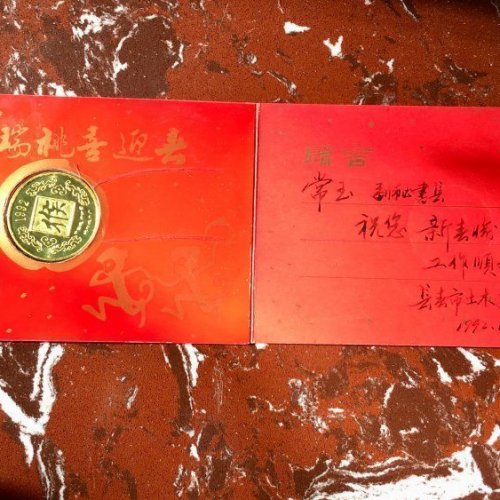 瑞桃喜迎春
1992
猴
赠言
常玉 副秘书长
祝您 新春愉
工作順
長春市土木
1992.